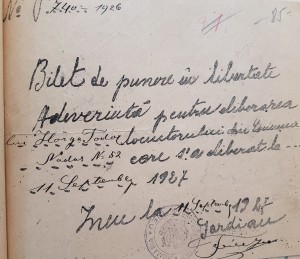 No 1926
- 25 -
Bilet de punere în libertate
Adeverință pentru eliberarea
lui locuitorului din Comuna
Nadas No 52 care s'a eliberat la
11 Septembr 1927
Ineu la 11 Septemb 1927
Gardian